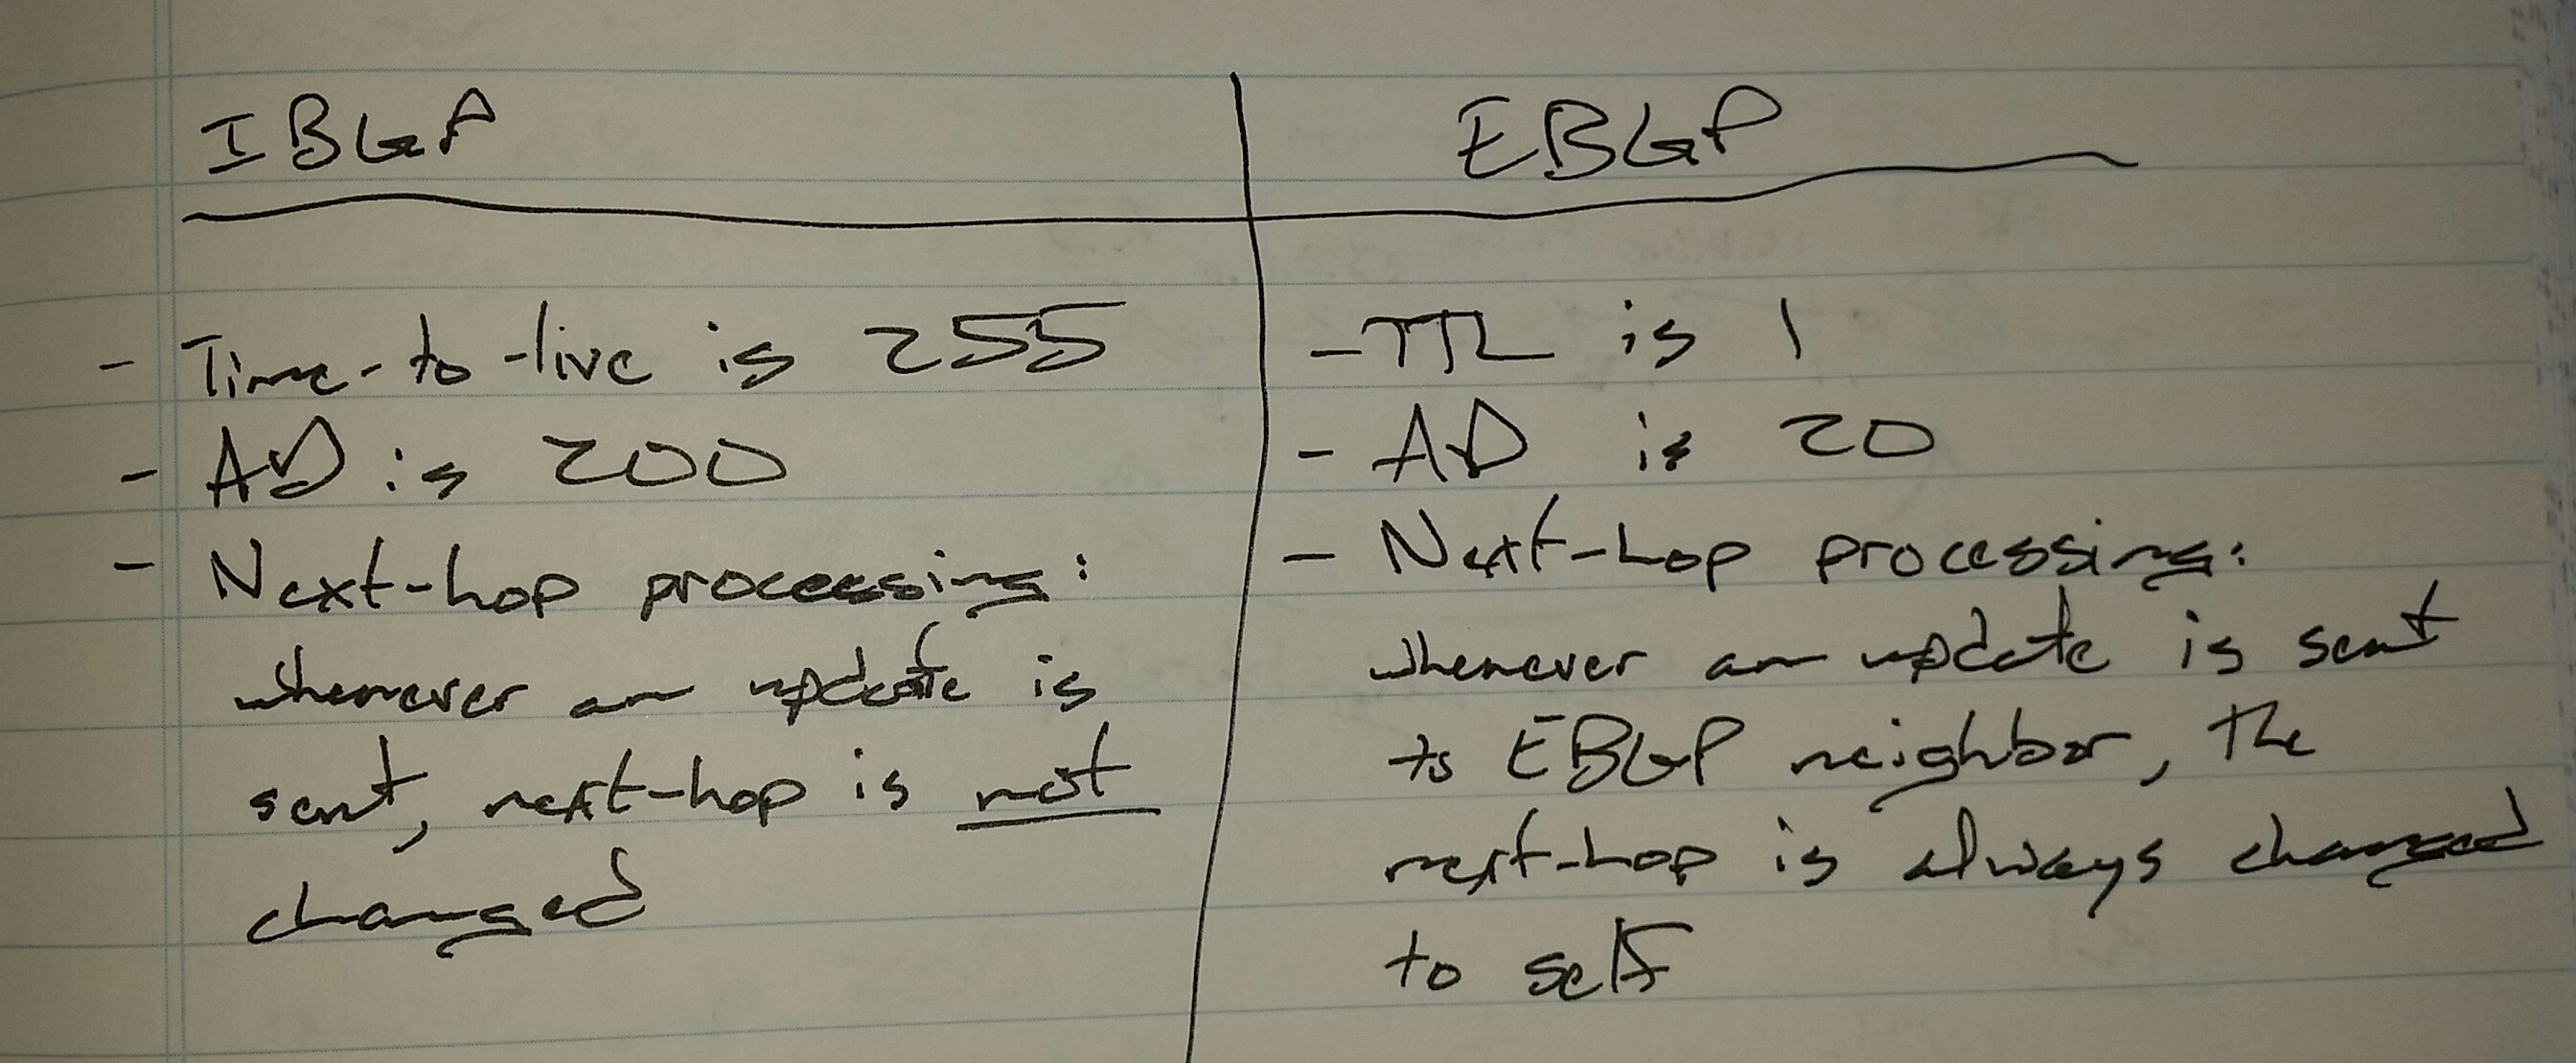 IBGP
- Time-to-live is 255
- AD is 200
- Next-hop processing:
whenever an update is
sent, next-hop is not
changed
EBGP
- TTL is 1
- AD is 20
- Next-hop processing:
whenever an update is sent
to EBGP neighbor, the
next-hop is always changed
to self